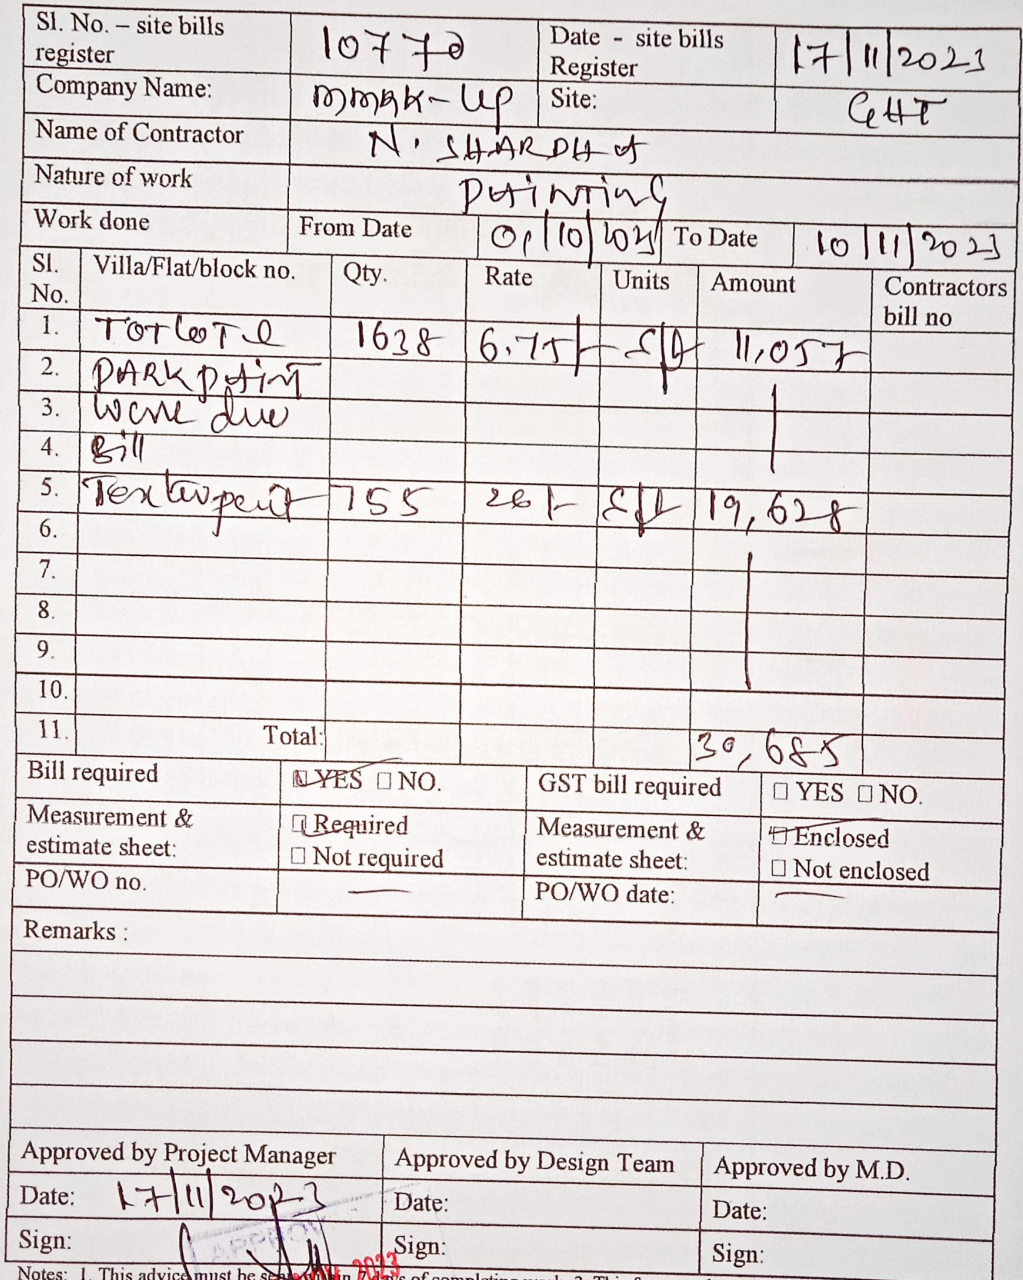 Sl. No. – site bills register 10770 Date - site bills Register 17/11/2023
Company Name: MMRK-UP Site: GHT
Name of Contractor N. SHARDHA
Nature of work PAINTING
Work done From Date 01/10/2023 To Date 10/11/2023
Sl. No. Villa/Flat/block no. Qty. Rate Units Amount Contractors bill no
1. TOT LOT & 1638 6.75/- Sft 11,057
2. PARK PAINT
3. Work due
4. Bill
5. Texturpaint 755 26/- Sft 19,628
6.
7.
8.
9.
10.
11. Total: 30,685
Bill required YES NO. GST bill required YES NO.
Measurement & estimate sheet: Required Not required Measurement & estimate sheet: Enclosed Not enclosed
PO/WO no. — PO/WO date: —
Remarks :
Approved by Project Manager Approved by Design Team Approved by M.D.
Date: 17/11/2023 Date: Date:
Sign: Sign: Sign:
APPROV
2023
Notes: 1. This advice must be